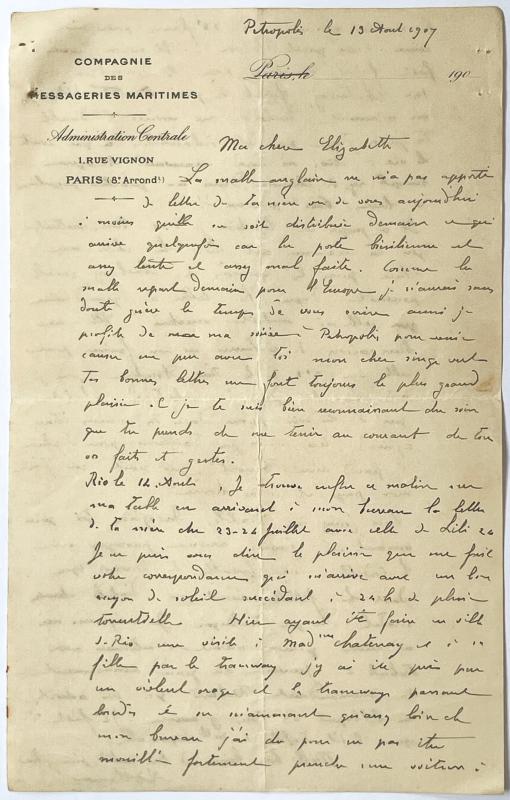 Petropolis le 13 Aout 1907
COMPAGNIE
DES
MESSAGERIES MARITIMES
Paris, le 190
Administration Centrale
1. RUE VIGNON
PARIS (8e Arrondt)
Ma chere Elizabeth
La malle anglaise ne m'a pas apporté
de lettre de ta mère ou de vous aujourd'hui
à moins qu'elle ne soit distribuée demain ce qui
arrive quelquefois car la poste brésilienne est
assez lente et assez mal faite. Comme la
malle repart demain pour l'Europe je n'aurais sans
doute guère le temps de vous écrire aussi je
profite de ma soirée à Petropolis pour venir
causer un peu avec toi mon cher singe vert
Tes bonnes lettres me font toujours le plus grand
plaisir et je te suis bien reconnaissant du soin
que tu prends de me tenir au courant de tous
vos faits et gestes.
Rio le 14 Aout, Je trouve enfin ce matin sur
ma table en arrivant à mon bureau la lettre
de ta mère du 23-24 Juillet avec celle de Lili 24
Je ne puis vous dire le plaisir que me fait
votre correspondance qui m'arrive avec un bon
rayon de soleil succédant à 24 h de pluie
torrentielle Hier ayant été faire en ville
à Rio une visite à Madme Chatenay et à sa
fille par le tramway j'y ai été pris par
un violent orage et les tramways passant
bondés et ne m'amenant qu'assez loin de
mon bureau j'ai du pour ne pas être
mouillé fortement prendre une voiture à